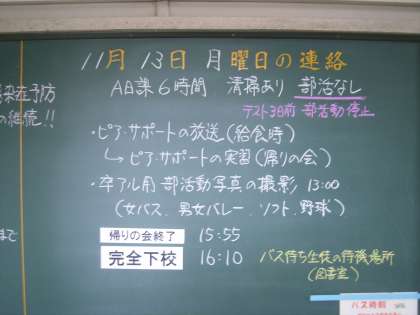 11月 13日 月曜日の連絡
A日課6時間 清掃あり 部活なし
テスト3日前 部活動停止
予防
の継続!!
・ピア・サポートの放送(給食時)
↳ ピア・サポートの実習(帰りの会)
・卒アル用 部活動写真の撮影 13:00
(女バス、男女バレー、ソフト、野球)
まで
帰りの会終了 15:55
完全下校 16:10 バス待ち生徒の待機場所
(図書室)
バス時刻